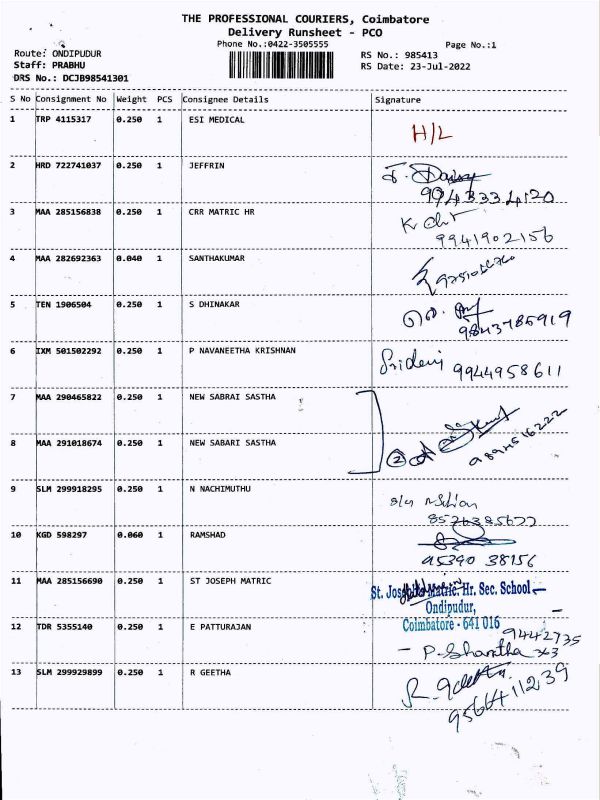 THE PROFESSIONAL COURIERS, Coimbatore
Delivery Runsheet - PCO
Phone No.:0422-3505555
Page No.:1
Route: ONDIPUDUR
RS No.: 985413
Staff: PRABHU
RS Date: 23-Jul-2022
DRS No.: DCJB98541301
S No Consignment No Weight PCS Consignee Details Signature
1 TRP 4115317 0.250 1 ESI MEDICAL H/L
2 HRD 722741037 0.250 1 JEFFRIN
9943334120
3 MAA 285156838 0.250 1 CRR MATRIC HR
9941902156
4 MAA 282692363 0.040 1 SANTHAKUMAR
5 TEN 1906504 0.250 1 S DHINAKAR
9843785919
6 IXM 501502292 0.250 1 P NAVANEETHA KRISHNAN Sridevi 9944958611
7 MAA 290465822 0.250 1 NEW SABRAI SASTHA
8 MAA 291018674 0.250 1 NEW SABARI SASTHA 2
9 SLM 299918295 0.250 1 N NACHIMUTHU
10 KGD 598297 0.060 1 RAMSHAD
95390 38156
11 MAA 285156690 0.250 1 ST JOSEPH MATRIC
St. Joseph's Matric. Hr. Sec. School
Ondipudur,
Coimbatore - 641 016
12 TDR 5355140 0.250 1 E PATTURAJAN
9442735
- P. Shantha 363
13 SLM 299929899 0.250 1 R GEETHA R. Geetha
9566411239